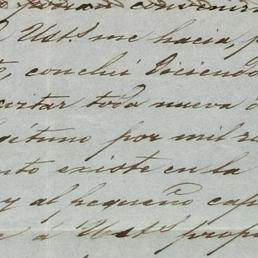 Ust.s me hacia, p
, concluí diciendo
evitar toda nueva
por mil ra
nto existe en la
y al pequeño cap
á Ust.s prop